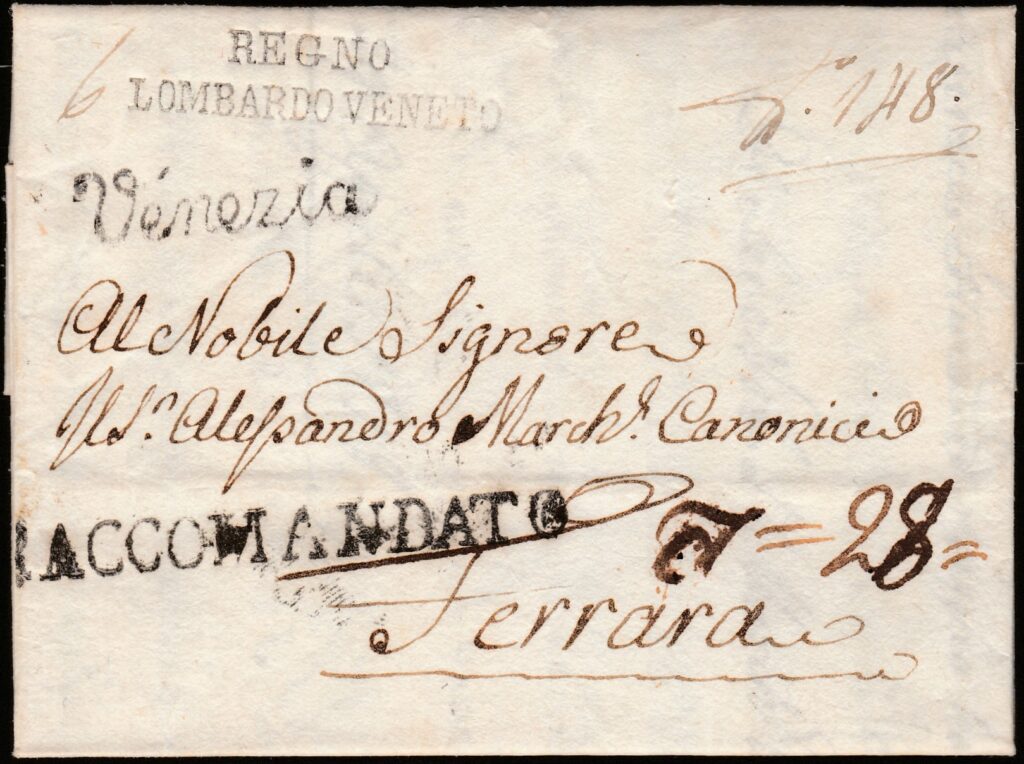 6
REGNO
LOMBARDO VENETO
148.
Venezia
Al Nobile Signore
Il Sr. Alessandro March. Canonici
RACCOMANDATO
= 28 =
Ferrara